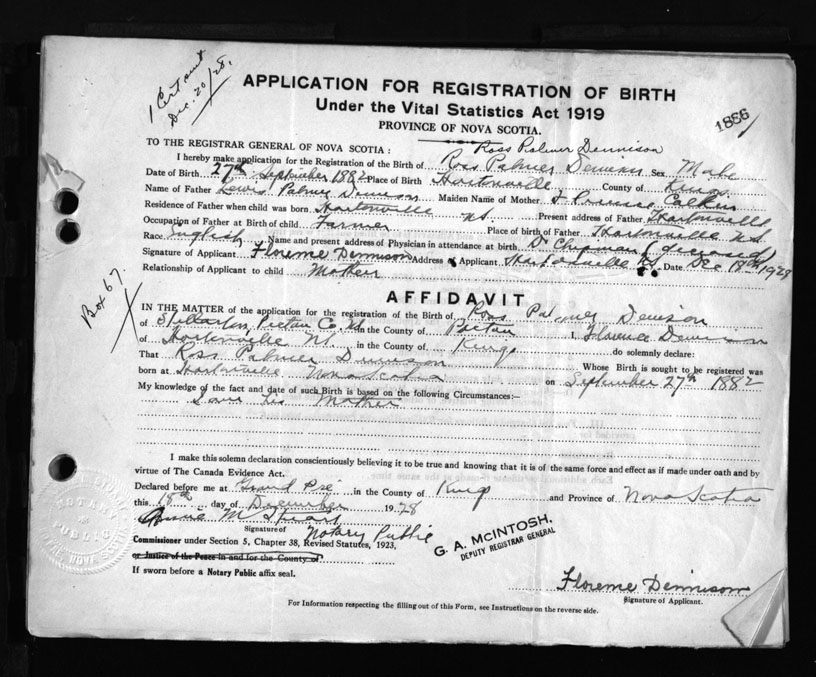 1 Cert sent
Dec. 20/28.
APPLICATION FOR REGISTRATION OF BIRTH
Under the Vital Statistics Act 1919
PROVINCE OF NOVA SCOTIA.
1886
Ross Palmer Dennison
TO THE REGISTRAR GENERAL OF NOVA SCOTIA:
I hereby make application for the Registration of the Birth of Ross Palmer Denison Sex Male
Date of Birth 27th September 1882 Place of Birth Hortonville County of Kings
Name of Father Lewis Palmer Denison Maiden Name of Mother Calkin
Residence of Father when child was born Hortonville NS. Present address of Father Hortonville
Occupation of Father at Birth of child Farmer Place of birth of Father Hortonville N.S.
Race English Name and present address of Physician in attendance at birth Dr Chipman (deceased)
Signature of Applicant Florence Dennison Address of Applicant Hortonville N.S. Date Dec 18th 1928
Relationship of Applicant to child Mother
Box 67.
AFFIDAVIT
IN THE MATTER of the application for the registration of the Birth of Ross Palmer Denison
of Stellarton, Pictou Co NS in the County of Pictou I, Florence Denison
of Hortonville NS. in the County of Kings do solemnly declare:
That Ross Palmer Denison Whose Birth is sought to be registered was
born at Hortonville Nova Scotia on September 27th 1882
My knowledge of the fact and date of such Birth is based on the following Circumstances:—
I am his Mother
I make this solemn declaration conscientiously believing it to be true and knowing that it is of the same force and effect as if made under oath and by
virtue of The Canada Evidence Act.
Declared before me at Grand Pré in the County of Kings and Province of Nova Scotia
this 18th day of December 1928
M Stuart
Signature of Notary Public
Commissioner under Section 5, Chapter 38, Revised Statutes, 1923,
or Justice of the Peace in and for the County of
If sworn before a Notary Public affix seal.
G. A. McINTOSH,
DEPUTY REGISTRAR GENERAL
Florence Dennison
Signature of Applicant.
For Information respecting the filling out of this Form, see Instructions on the reverse side.
NOTARY PUBLIC
NOVA SCOTIA